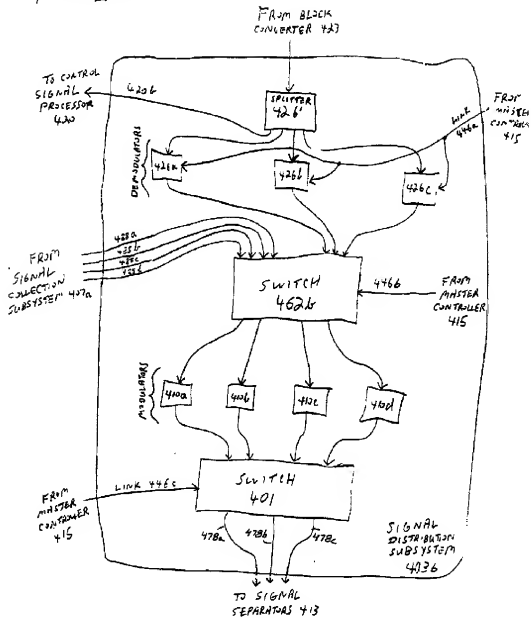 FROM BLOCK
CONVERTER 423
TO CONTROL
SIGNAL
PROCESSOR
420
420b
SPLITTER
426'
FROM
MASTER
CONTROLLER
415
LINK
446a
DEMODULATORS
426a
426b
426c
FROM
SIGNAL
COLLECTION
SUBSYSTEM 407a
428a
428b
428c
428d
SWITCH
462b
446b
FROM
MASTER
CONTROLLER
415
MODULATORS
410a
410b
410c
410d
FROM
MASTER
CONTROLLER
415
LINK 446c
SWITCH
401
478a
478b
478c
SIGNAL
DISTRIBUTION
SUBSYSTEM
473b
TO SIGNAL
SEPARATORS 413